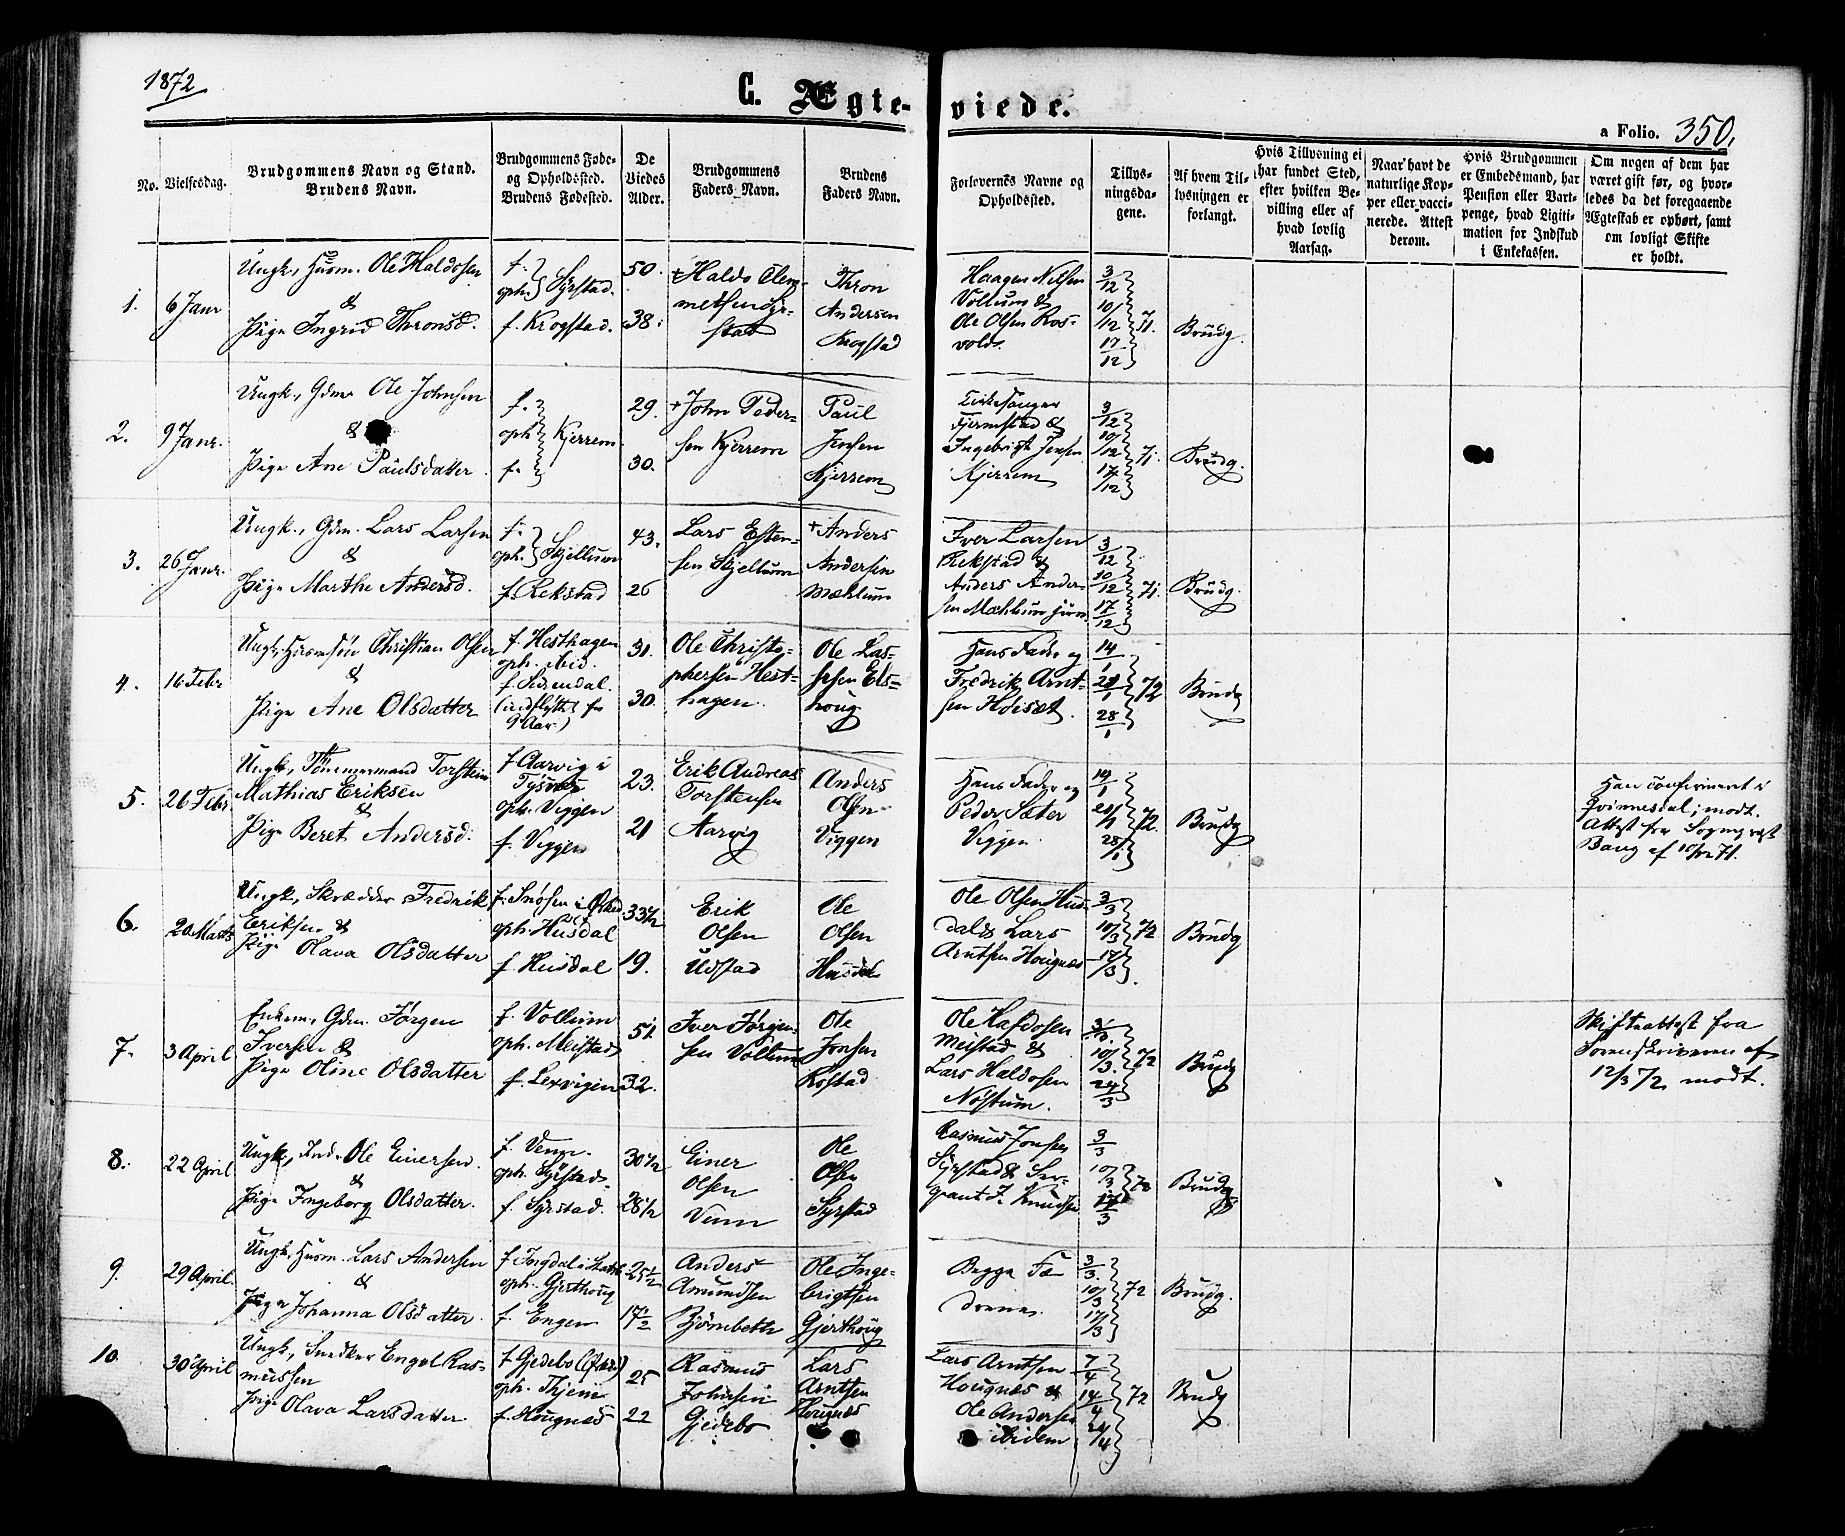 1872
C. Ægte-viede.
a Folio. 350.
No.
Vielsesdag.
Brudgommens Navn og Stand.
Brudens Navn.
Brudgommens Føde-
og Opholdssted.
Brudens Fødested.
De
Viedes
Alder.
Brudgommens
Faders Navn.
Brudens
Faders Navn.
Forlovernes Navne og
Opholdssted.
Tillys-
ningsda-
gene.
Af hvem Til-
lysningen er
forlangt.
Hvis Tillysning ei
har fundet Sted,
efter hvilken Be-
villing eller af
hvad lovlig
Aarsag.
Naar havt de
naturlige Kop-
per eller vacci-
nerede. Attest
derom.
Hvis Brudgommen
er Embedsmand, har
Pension eller Vart-
penge, hvad Legiti-
mation for Indskud
i Enkekassen.
Om nogen af dem har
været gift før, og hvor-
ledes da det foregaaende
Ægteskab er ophørt, samt
om lovligt Skifte
er holdt.
1. 6 Janr
Ungk., Husm. Ole Haldosen
&
Pige Ingrid Thronsd.
f.
oph. Syrstad.
f. Krogstad.
50.
38.
+Haldo Clem-
metsen Syr-
stad
Thron
Andersen
Krogstad
Haagen Nilsen
Vollum &
Ole Olsen Ros-
vold.
3/12
10/12 71.
17/12
Brudg.
2. 9 Janr.
Ungk., Gdm. Ole Johnsen
&
Pige Ane Paulsdatter
f.
oph. Kjerrem
f.
29.
30.
+John Peder-
sen Kjerrem
Paul
Jensen
Kjerrem
Kirkesanger
Fjermstad &
Ingebrigt Jensen
Kjerrem
3/12
10/12 71.
17/12
Brudg.
3. 26 Janr.
Ungk., Gdm. Lars Larsen
&
Pige Marthe Andersd.
f.
oph. Skjellum
f. Rekstad
43.
26
Lars Esten-
sen Skjellum
+Anders
Andersen
Mæhlum
Iver Larsen
Rekstad &
Anders Ander-
sen Mæhlum junr.
3/12
10/12 71.
17/12
Brudg.
4. 16 Febr
Ungk., Husmsøn Christian Olsen
&
Pige Ane Olsdatter
f Hesthagen
oph. ibid.
f. Surendal.
(indflyttet for
9 Aar)
31.
30.
Ole Christo-
phersen Hest-
hagen.
Ole Las-
sesen Els-
houg
Hans Fader og
Fredrik Arnt-
sen Hoiset.
14/1
21/1 72
28/1
Brudg
5. 26 Febr.
Ungk., Tømmermand Torstein
Mathias Eriksen
&
Pige Beret Andersd.
f Aarvig i
Tysvær
oph. Viggen
f. Viggen
23.
21
Erik Andreas
Torstensen
Aarvig
Anders
Olsen
Viggen
Hans Fader og
Peder Sæter
Viggen
14/1
21/1 72.
28/1
Brudg
Han confirmeret i
Qvinnesdal; modt.
Attest fra Sogneprst
Baug af 10/12 71.
6. 20 Marts
Ungk., Skrædder Fredrik
Eriksen &
Pige Olava Olsdatter
oph. Husdal
f Husdal
33 1/2
19.
Erik
Olsen
Udstad
Ole
Olsen
Husdal
Ole Olsen Hus-
dal & Lars
Arntsen Hougnæs
3/3
10/3 72
17/3
Brudg
7. 3 April
Enkem., Gdm. Jørgen
Iversen &
Pige Oline Olsdatter
f. Vollum
oph. Meistad
f. Lexvigen
51.
32.
Iver Jørgen-
sen Vollum
Ole
Jonsen
Rostad
Ole Haldosen
Meistad &
Lars Haldosen
Nøstum.
3/3
10/3 72
24/3
Brudg
Skifteattest fra
Sorenskriveren af
12/3 72 modt.
8. 22 April
Ungk., Ind. Ole Einersen.
&
Pige Ingeborg Olsdatter.
f. Venn.
oph. Syrstad.
f. Syrstad.
30 1/2
28 1/2
Einer
Olsen
Venn
Ole
Olsen
Syrstad
Rasmus Jonsen
Syrstad & Ser-
geant J. Knudsen
3/3
10/3 72
17/3
Brudg
9. 29 April.
Ungk. Husm. Lars Andersen
&
Pige Johanna Olsdatter.
oph. Gjerthoug
f. Engen
25 1/2
17 1/2
Anders
Amundsen
Bjørnbeth
Ole Inge-
brigtsen
Gjerthoug
Begge Fæ-
drene.
3/3
10/3 72
17/3
Brudg.
10. 30 April
Ungk., Snedker Engel Ras-
mussen
Pige Olava Larsdatter
f Gjedebo
f. Hougnæs
25
22
Rasmus
Johnsen
Gjedebo
Lars
Arntsen
Hougnæs
Lars Arntsen
Hougnæs &
Ole Andersen
ibidem
7/4
14/4 72
21/4
Brudg